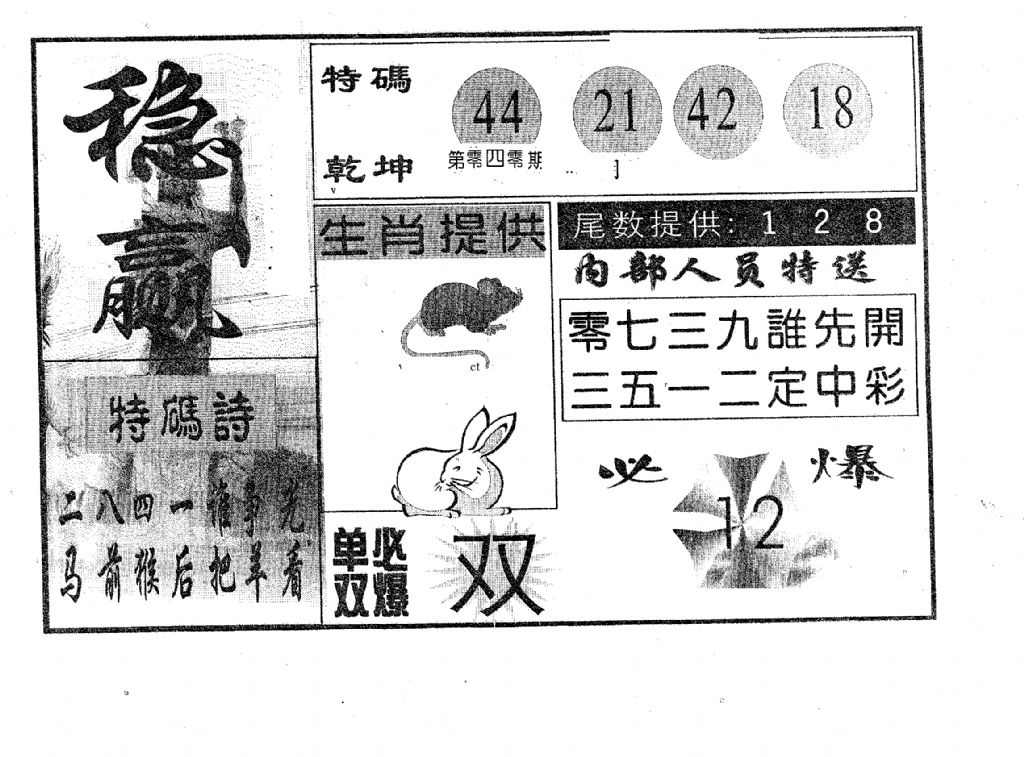 稳赢
特碼詩
二八四一誰爭先
马前猴后把羊看
特碼
乾坤
44 21 42 18
第零四零期
生肖提供
单双必爆
双
尾数提供: 1 2 8
内部人员特送
零七三九誰先開
三五一二定中彩
必爆
12